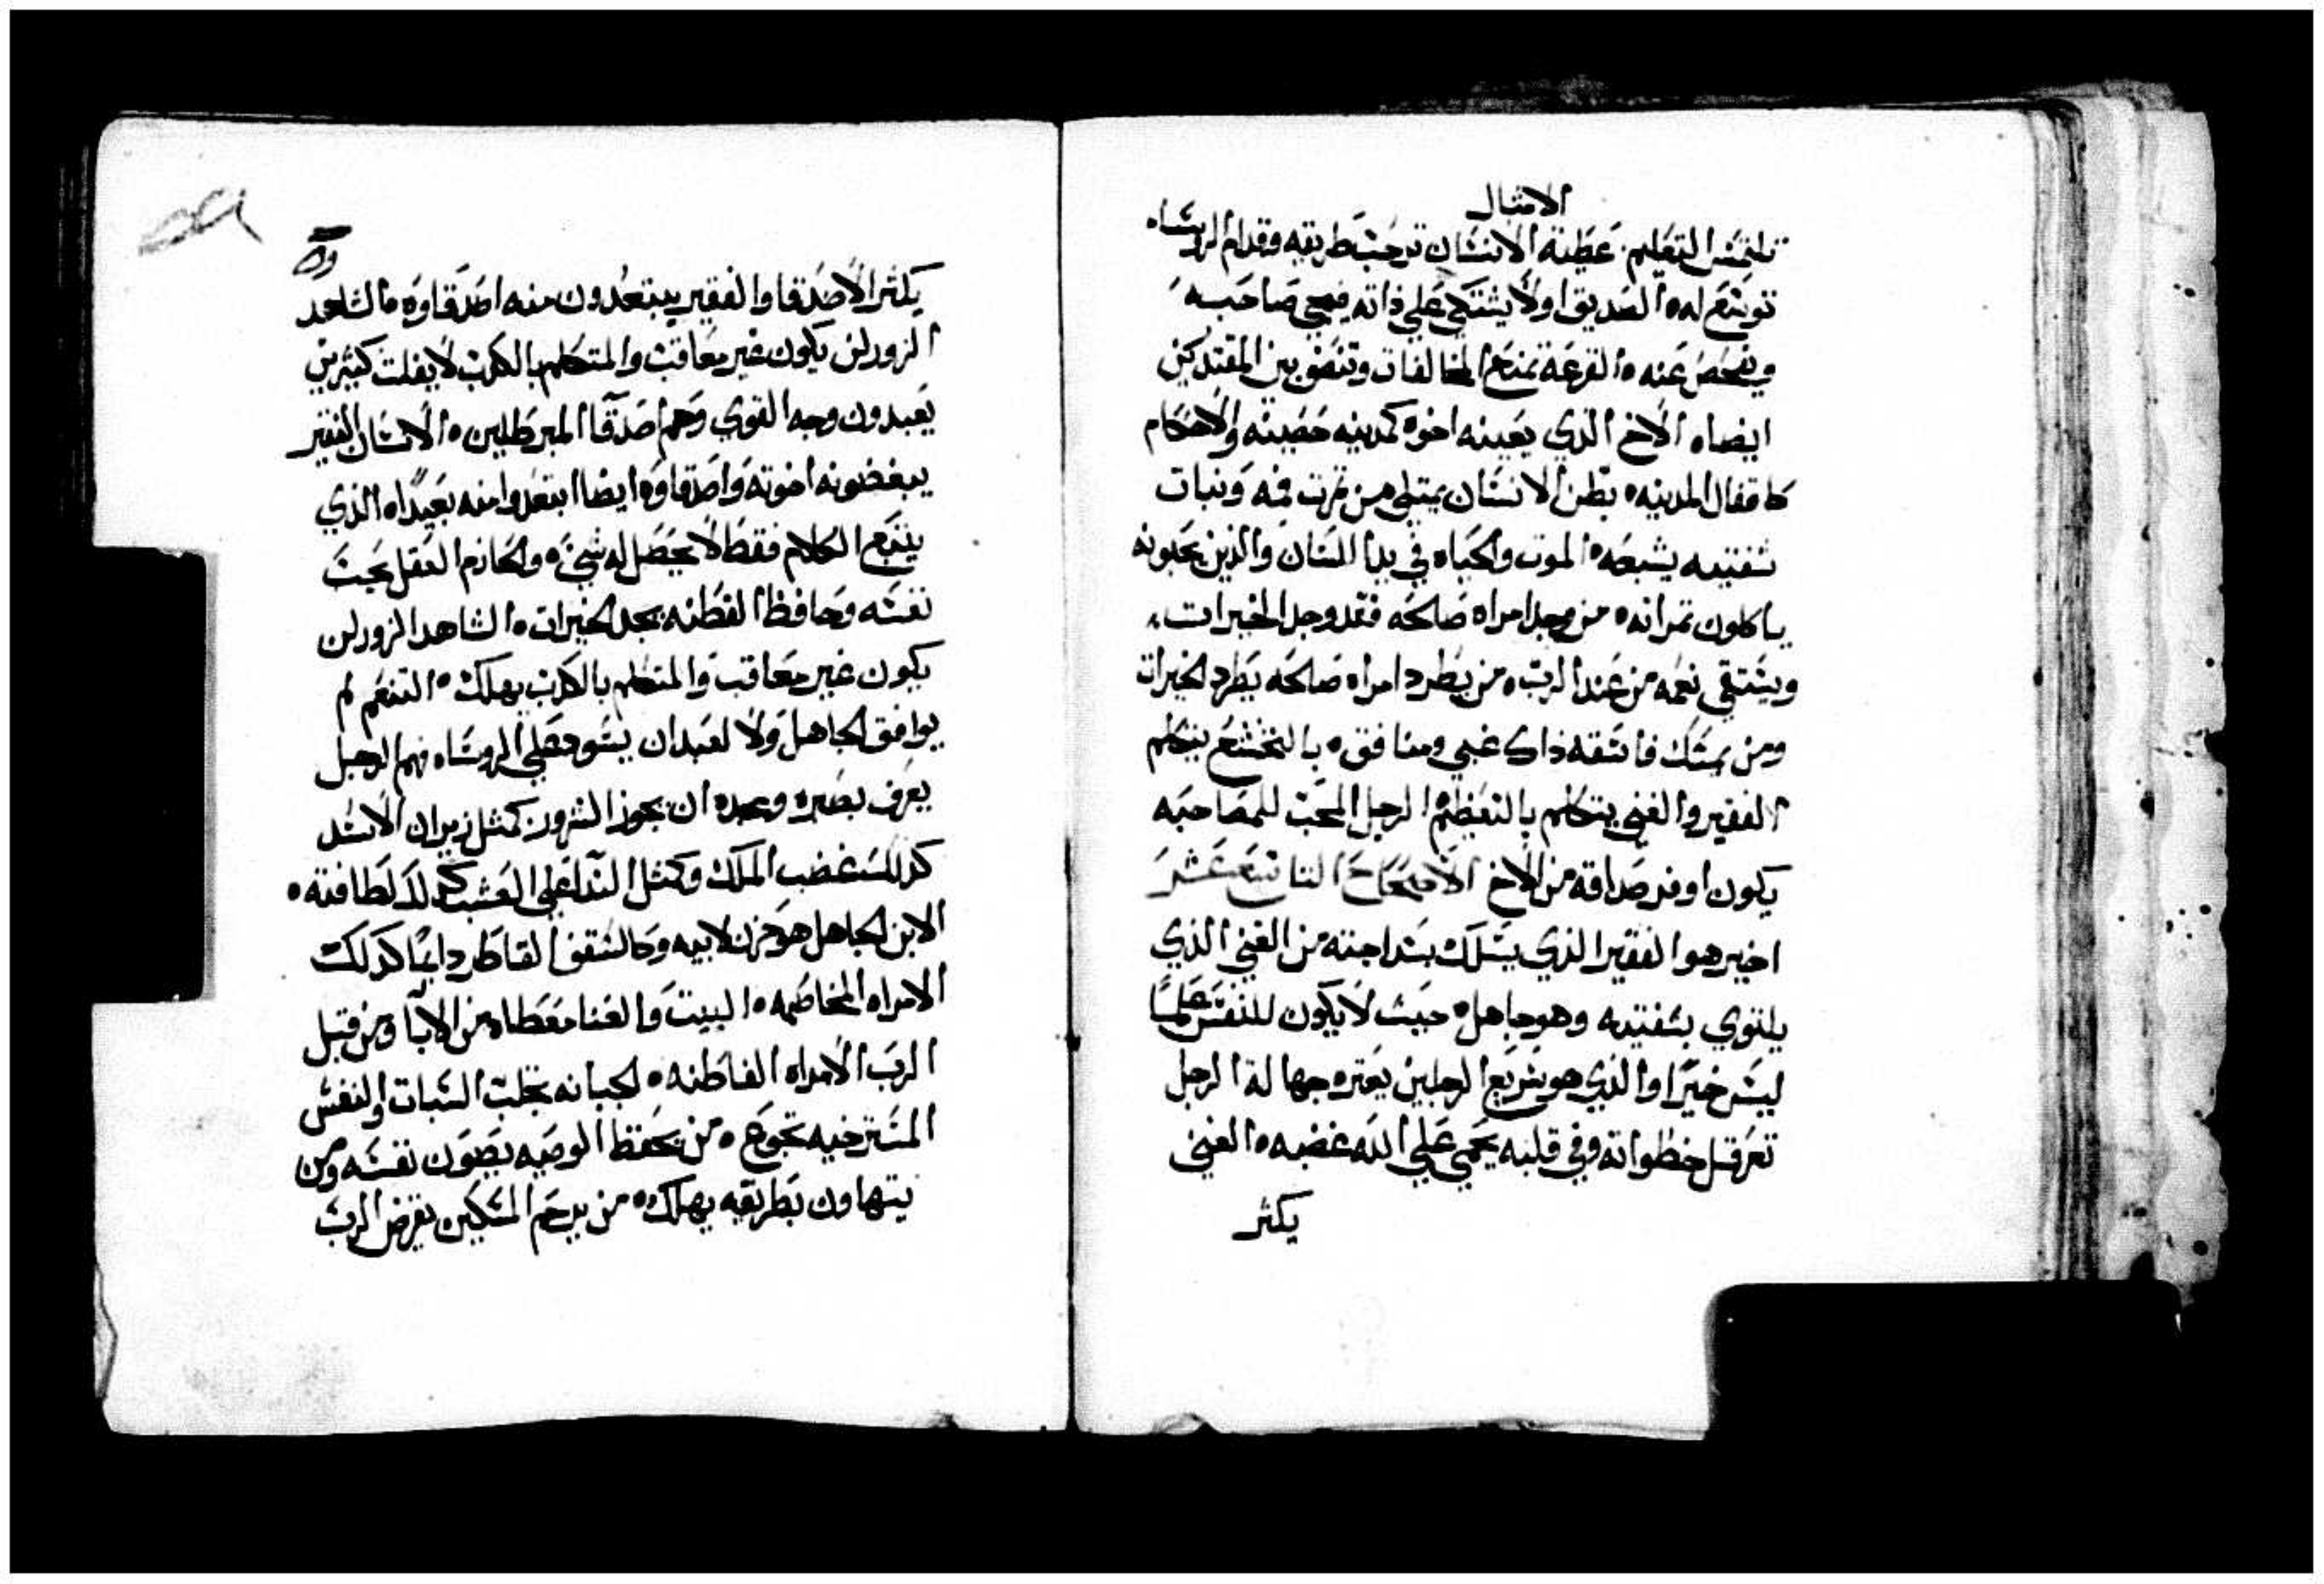 الامثال
تلتمس التعليم. عطية الانسان ترحب طريقه وقدام الروساه
توضع له ه الصديق اولا يشتكي علي ذاته فيجي صاحبه
ويفحص عنه ه القرعة تمنع المخالفات وتقضي بين المقتدرين
ايضاه الاخ الذي يعينه اخوه كمدينه حصينه والاحكام
كاقفال المدينه ه بطن الانسان يمتلي من ثمرت فيه ونبات
شفتيه يشبعه ه الموت والحياه في يدا اللسان والذين يحبونه
ياكلون ثمراته ه من وجد امراه صالحه فقد وجد الخيرات
ويستقي نعمه من عند الرب ه من يطرد امراه صالحه يطرد الخيرات
ومن يمسك فاسقه ذاك غبي ومنافق ه بالتخشع يتكلم
الفقير والغني يتكلم بالتعظم ه الرجل المحب للمصاحبه
يكون اوفر صداقه من الاخ الاصحاح التاسع عشر
اخير هوا الفقير الذي يسلك بسداجته من الغني الذي
يلتوي بشفتيه وهو جاهل ه حيث لا يكون للنفس علما
ليس خيرا والذي هو سريع الرجلين يعتر ه جهالة الرجل
تعرقل خطواته وفي قلبه يحمي علي الله غضبه ه الغني
يكثر
يكثر الاصدقا والفقير يبتعدون منه اصدقاوه ه الشاهد
الزور لن يكون غير معاقب والمتكلم بالكدب لا يفلت كثيرين
يعبدون وجه القوي وهم اصدقا المبرطلين ه الانسان الفقير
يبغضونه اخوته واصدقاوه ايضا ابتعدوا منه بعيدا ه الذي
يتبع الكلام فقط لا يحصل له شي ه والحازم العقل يحب
نفسه وحافظ الفطنه يجد الخيرات ه الشاهد الزور لن
يكون غير معاقب والمتكلم بالكدب يهلك ه التنعم لم
يوافق الجاهل ولا لعبد ان يسود علي الروساه فهم الرجل
يعرف بصبره ومجده ان يجوز الشرور ه كمثل زيران الاسد
كدلك غضب الملك وكمثل الندا علي العشب كدلك لطافته ه
الابن الجاهل هو حزن لابيه وكالسقف القاطر دايما كدلك
الامراه المخاصمه ه البيت والغنا معطاه من الابا ومن قبل
الرب الامراه الفاطنه ه الجبانه تجلب السبات والنفس
المسترخيه تجوع ه من يحفظ الوصيه يصون نفسه ومن
يتهاون بطريقه يهلك ه من يرحم المسكين يقرض الرب